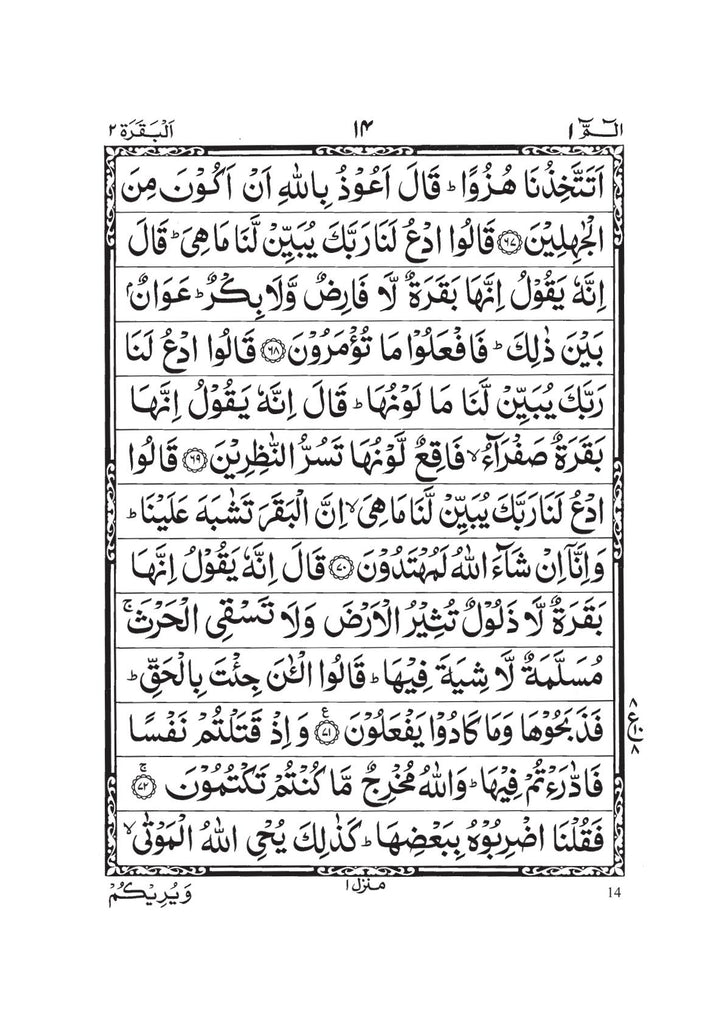 الٓمّٓ ١ ١٤ اَلْبَقَرَة ٢
اَتَتَّخِذُنَا هُزُوًا ؕ قَالَ اَعُوْذُ بِاللّٰهِ اَنْ اَكُوْنَ مِنَ
الْجٰهِلِيْنَ ﴿۶۷﴾ قَالُوا ادْعُ لَنَا رَبَّكَ يُبَيِّنْ لَّنَا مَا هِىَ ؕ قَالَ
اِنَّهٗ يَقُوْلُ اِنَّهَا بَقَرَةٌ لَّا فَارِضٌ وَّلَا بِكْرٌ ؕ عَوَانٌۢ
بَيْنَ ذٰلِكَ ؕ فَافْعَلُوْا مَا تُؤْمَرُوْنَ ﴿۶۸﴾ قَالُوا ادْعُ لَنَا
رَبَّكَ يُبَيِّنْ لَّنَا مَا لَوْنُهَا ؕ قَالَ اِنَّهٗ يَقُوْلُ اِنَّهَا
بَقَرَةٌ صَفْرَآءُ ۙ فَاقِعٌ لَّوْنُهَا تَسُرُّ النّٰظِرِيْنَ ﴿۶۹﴾ قَالُوا
ادْعُ لَنَا رَبَّكَ يُبَيِّنْ لَّنَا مَا هِىَ ۙ اِنَّ الْبَقَرَ تَشٰبَهَ عَلَيْنَا ؕ
وَاِنَّاۤ اِنْ شَآءَ اللّٰهُ لَمُهْتَدُوْنَ ﴿۷۰﴾ قَالَ اِنَّهٗ يَقُوْلُ اِنَّهَا
بَقَرَةٌ لَّا ذَلُوْلٌ تُثِيْرُ الْاَرْضَ وَلَا تَسْقِى الْحَرْثَ ۚ
مُسَلَّمَةٌ لَّا شِيَةَ فِيْهَا ؕ قَالُوا الْـٰٔنَ جِئْتَ بِالْحَقِّ ؕ
فَذَبَحُوْهَا وَمَا كَادُوْا يَفْعَلُوْنَ ﴿۷۱﴾ ع وَاِذْ قَتَلْتُمْ نَفْسًا
۸ ع ۱۰ ۸
فَادّٰرَءْتُمْ فِيْهَا ؕ وَاللّٰهُ مُخْرِجٌ مَّا كُنْتُمْ تَكْتُمُوْنَ ﴿۷۲﴾ ۚ
فَقُلْنَا اضْرِبُوْهُ بِبَعْضِهَا ؕ كَذٰلِكَ يُحْىِ اللّٰهُ الْمَوْتٰى ۙ
14 منزل ١ وَيُرِيْكُمْ